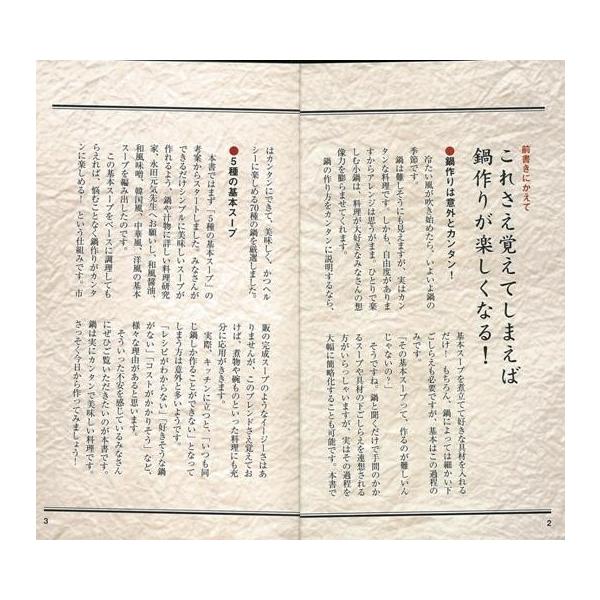 前書きにかえて
これさえ覚えてしまえば
鍋作りが楽しくなる！
●鍋作りは意外とカンタン！
冷たい風が吹き始めたら、いよいよ鍋の
季節です。
鍋は難しそうにも見えますが、実はカン
タンな料理です。しかも、自由度がありま
すからアレンジは思うがまま。ひとりで楽
しむ小鍋は、料理が大好きなみなさんの想
像力を膨らませてくれます。
鍋の作り方をカンタンに説明するなら、
基本スープを煮立てて好きな具材を入れる
だけ！もちろん、鍋によっては細かい下
ごしらえも必要ですが、基本はこの過程の
みです。
「その基本スープって、作るのが難しいん
じゃないの？」
そうですね。鍋と聞くだけで手間のかか
るスープや具材の下ごしらえを連想される
方がいらっしゃいますが、実はその過程を
大幅に簡略化することも可能です。本書で
はカンタンにできて、美味しく、かつヘル
シーに楽しめる70種の鍋を厳選しました。
●5種の基本スープ
本書ではまず「5種の基本スープ」の
考案からスタートしました。みなさんが
できるだけシンプルに美味しいスープが
作れるよう、鍋や汁物に詳しい料理研究
家、永田元気先生へお願いし、和風醤油、
和風味噌、韓国風、中華風、洋風の基本
スープを編み出したのです。
この基本スープをベースに調理しても
らえれば、悩むことなく鍋作りがカンタ
ンに楽しめる！という仕組みです。市
販の完成スープのようなイージーさはあ
りませんが、このブレンドさえ覚えてお
けば、煮物や椀ものといった料理にも充
分に応用がききます。
実際、キッチンに立つと、「いつも同
じ鍋しか作ることができない」となって
しまう方は意外と多いようです。
「レシピがわからない」「好きそうな鍋
がない」「コストがかかりそう」など、
様々な理由があると思います。
そういった不安を感じているみなさん
にぜひご覧いただきたいのが本書です。
鍋は実にカンタンで美味しい料理です。
さっそく今日から作ってみましょう！
3
2